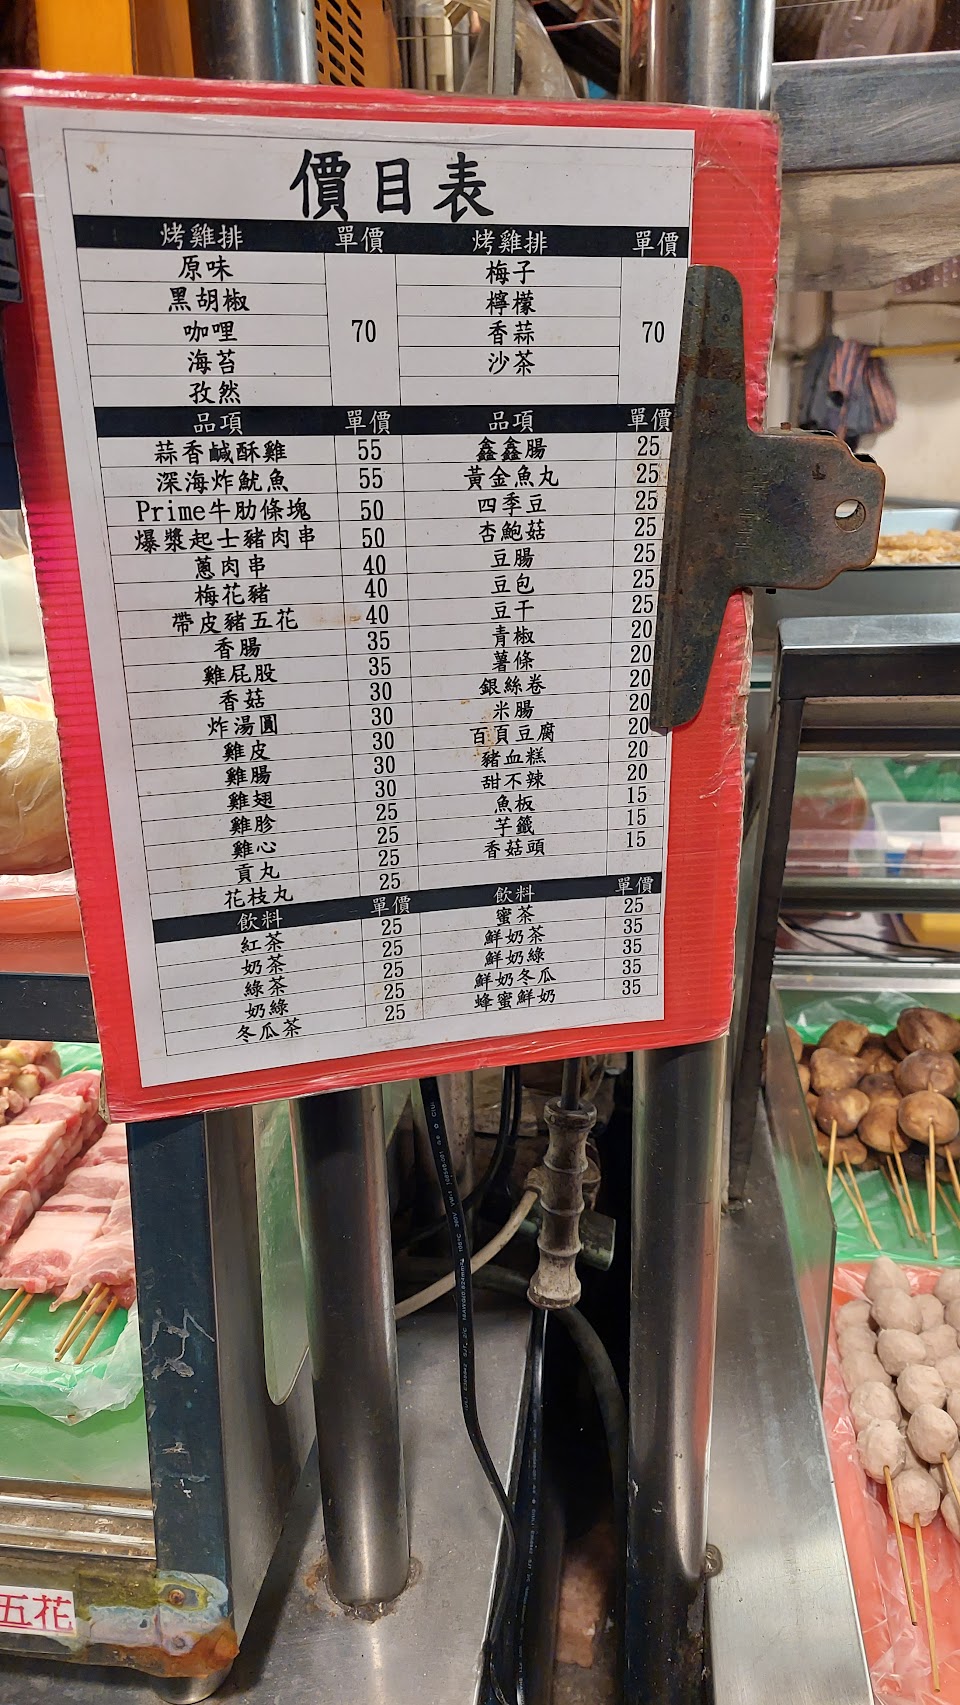 價目表
烤雞排 單價 烤雞排 單價
原味 梅子
黑胡椒 檸檬
咖哩 70 香蒜 70
海苔 沙茶
孜然
品項 單價 品項 單價
蒜香鹹酥雞 55 鑫鑫腸 25
深海炸魷魚 55 黃金魚丸 25
Prime牛肋條塊 50 四季豆 25
爆漿起士豬肉串 50 杏鮑菇 25
蔥肉串 40 豆腸 25
梅花豬 40 豆包 25
帶皮豬五花 40 豆干 25
香腸 35 青椒 20
雞屁股 35 薯條 20
香菇 30 銀絲卷 20
炸湯圓 30 米腸 20
雞皮 30 百頁豆腐 20
雞腸 30 豬血糕 20
雞翅 30 甜不辣 20
雞胗 25 魚板 15
雞心 25 芋籤 15
貢丸 25 香菇頭 15
花枝丸 25
飲料 單價 飲料 單價
紅茶 25 蜜茶 25
奶茶 25 鮮奶茶 35
綠茶 25 鮮奶綠 35
奶綠 25 鮮奶冬瓜 35
冬瓜茶 25 蜂蜜鮮奶 35
五花